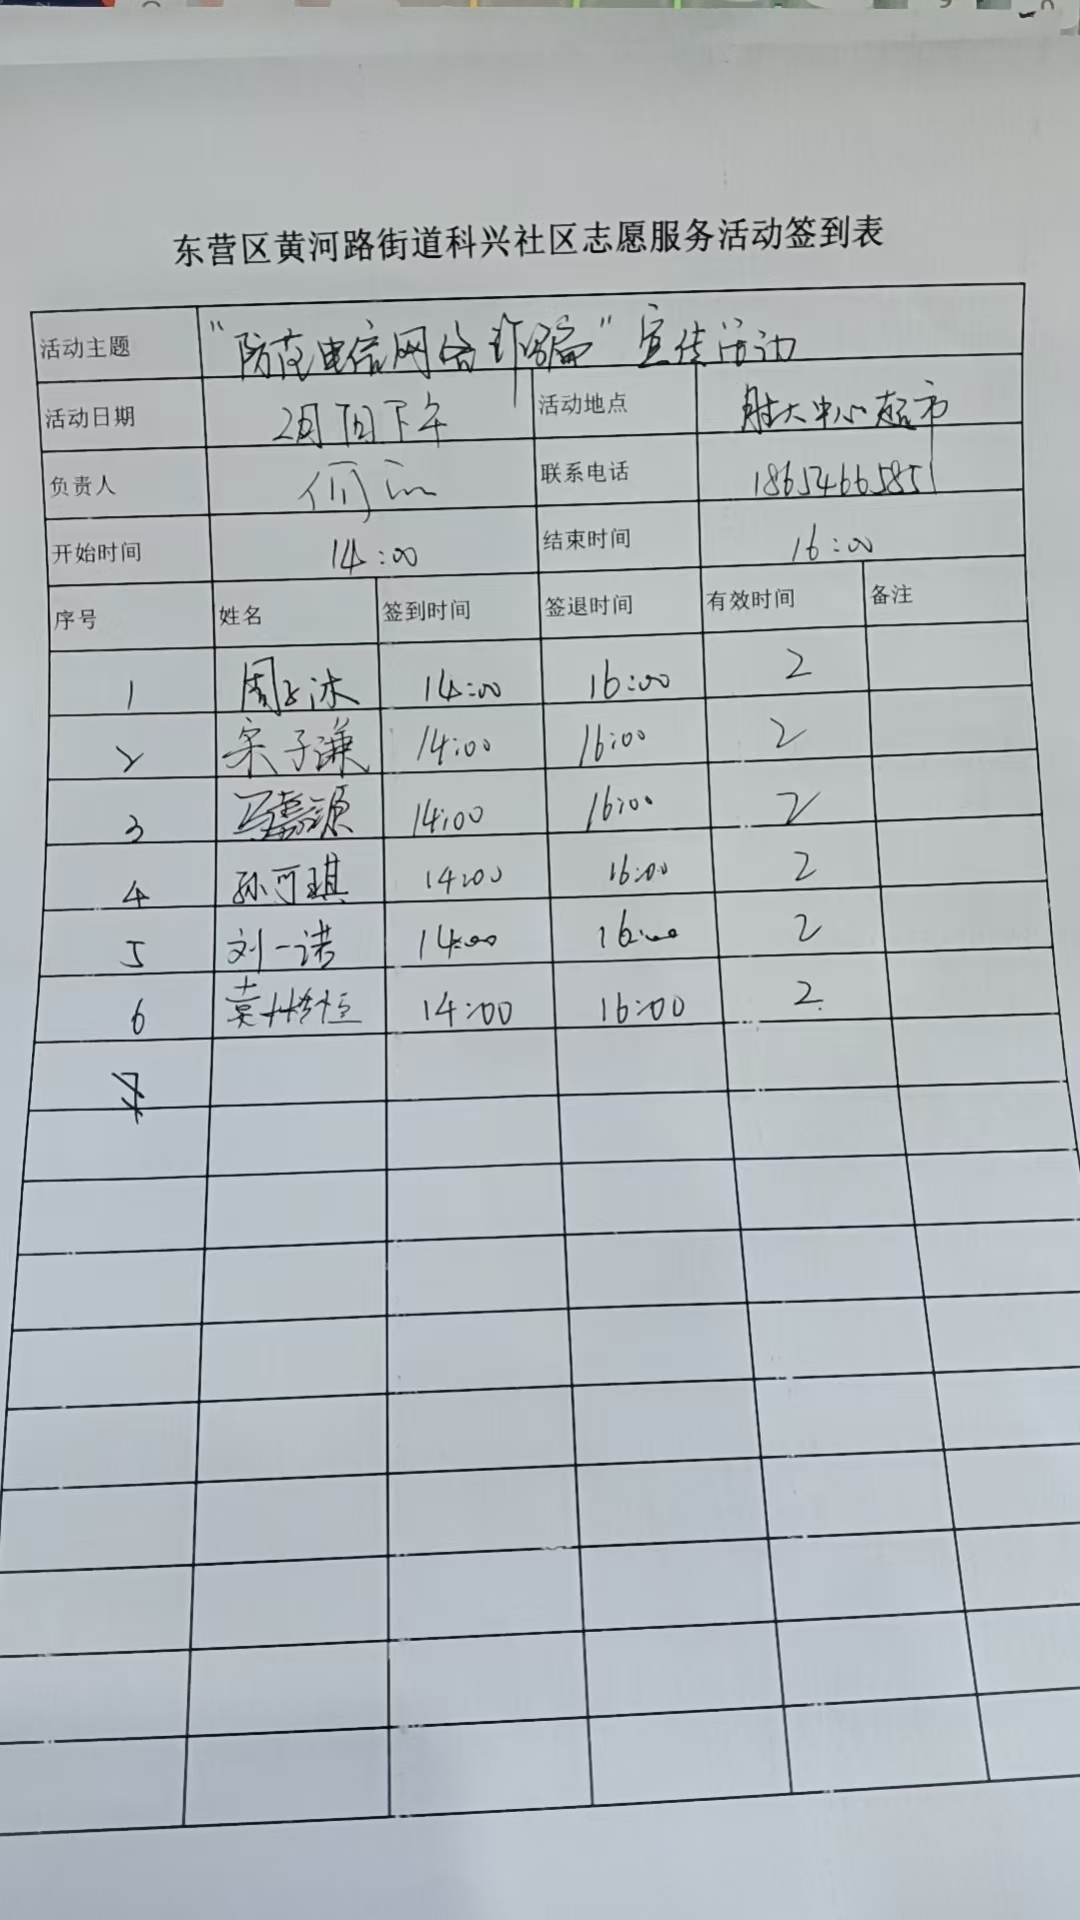 东营区黄河路街道科兴社区志愿服务活动签到表
活动主题 "防范电信网络诈骗"宣传活动
活动日期 2月7日下午 活动地点 胜大中心超市
负责人 联系电话 18654665851
开始时间 14:00 结束时间 16:00
序号 姓名 签到时间 签退时间 有效时间 备注
1 周子沐 14:00 16:00 2
2 宋子谦 14:00 16:00 2
3 马嘉源 14:00 16:00 2
4 孙可琪 14:00 16:00 2
5 刘一诺 14:00 16:00 2
6 14:00 16:00 2
7